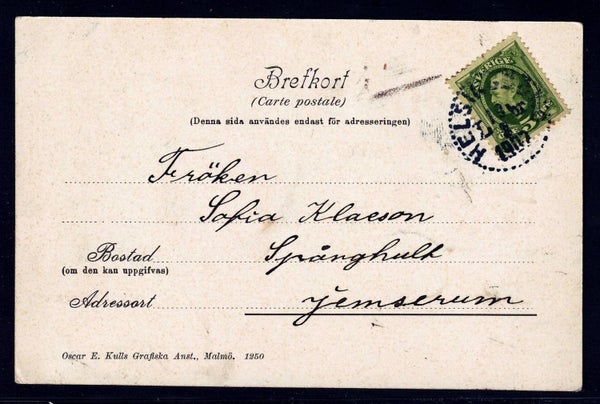 Brefkort
(Carte postale)
(Denna sida användes endast för adresseringen)
SVERIGE
Fröken
Sofia Klaeson
Bostad
(om den kan uppgifvas)
Spånghult
Adressort
Jemserum
Oscar E. Kulls Grafiska Anst., Malmö. 1250